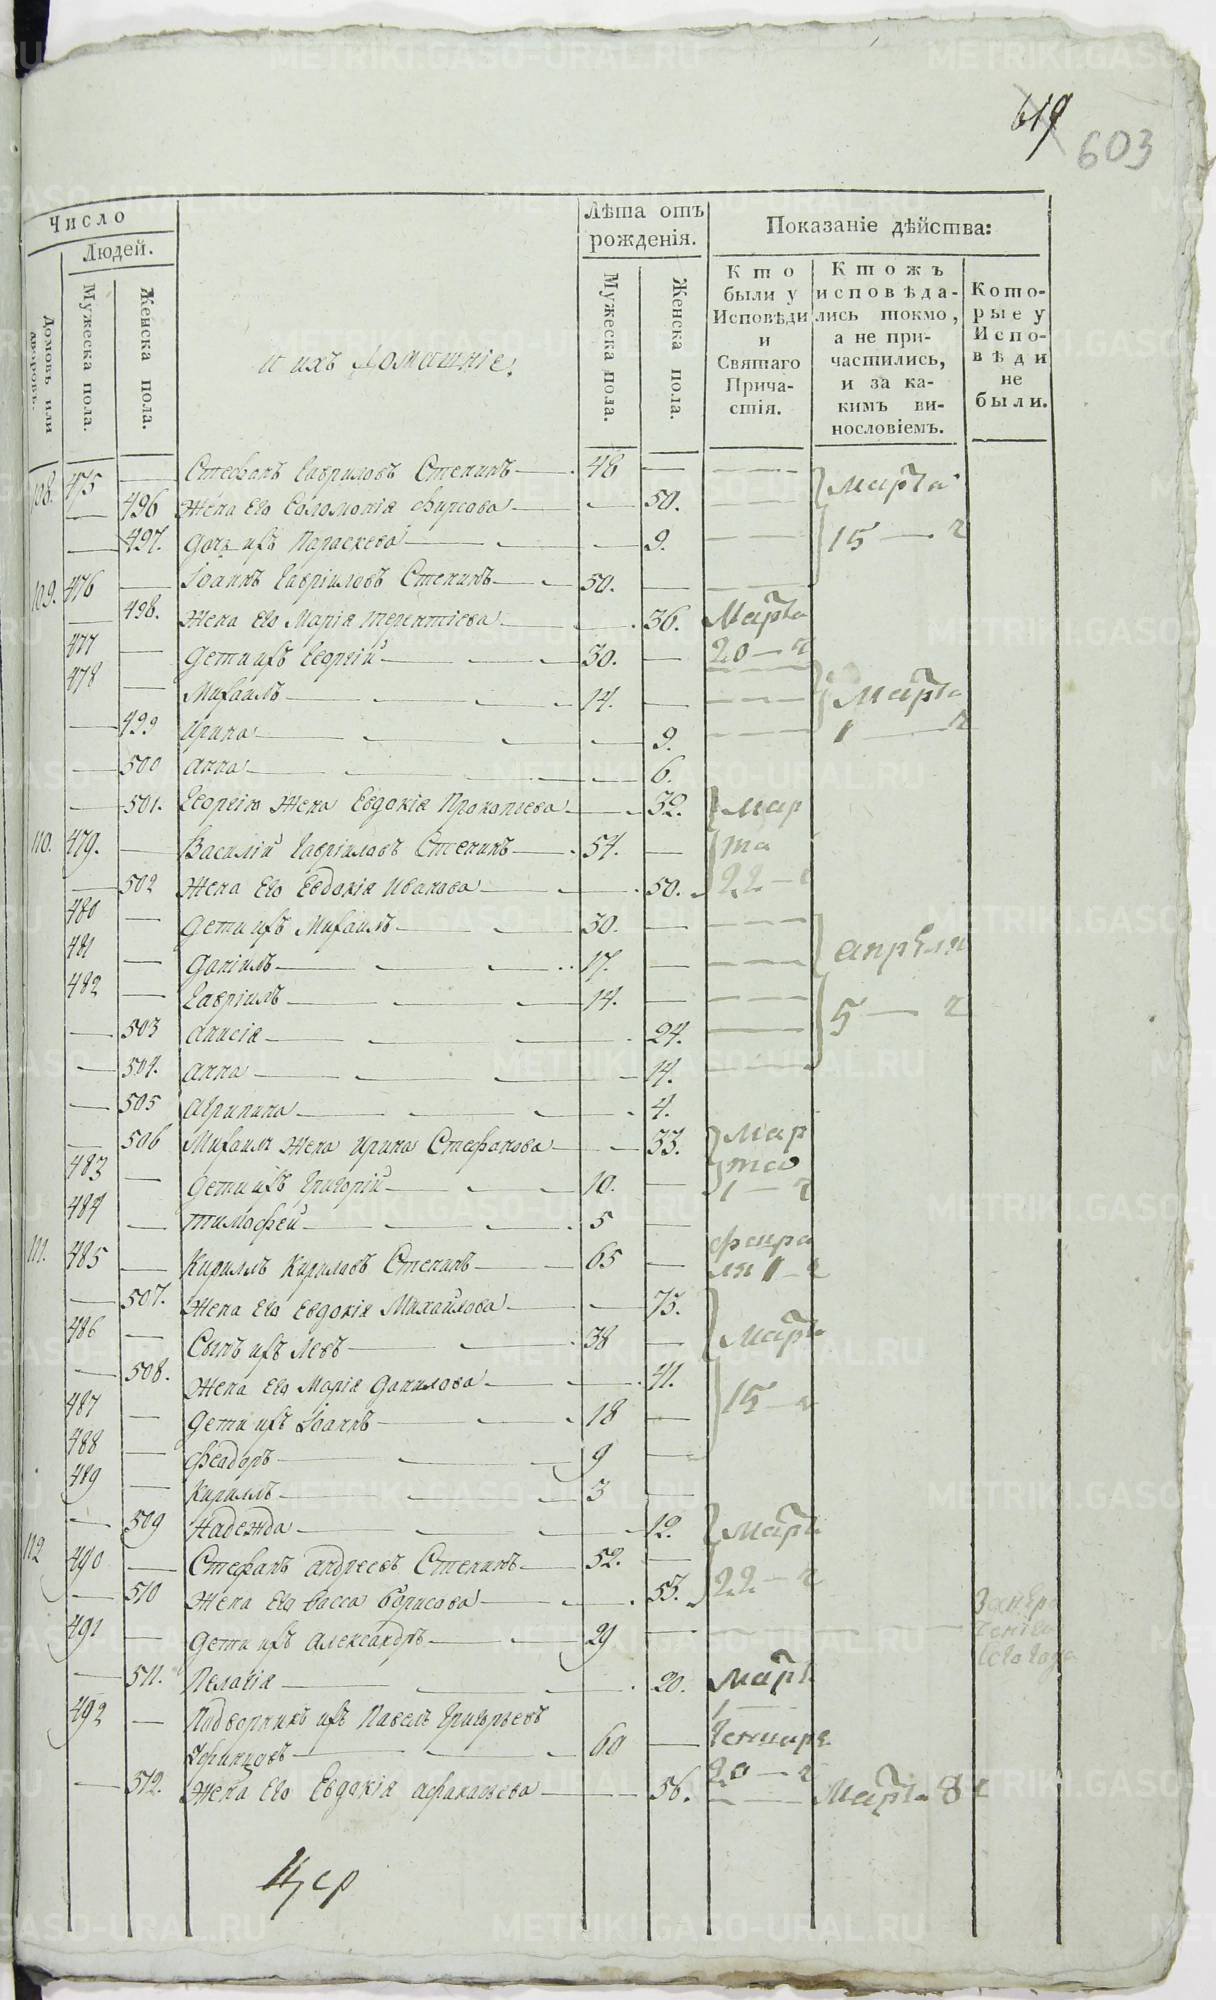 619
603
Число
Людей.
Домовъ или дворовъ.
Мужеска пола.
Женска пола.
и ихъ домашніе.
Лѣта отъ рожденія.
Мужеска пола.
Женска пола.
Показаніе дѣйства:
Кто были у Исповѣди и Святаго Причастія.
Ктожъ исповѣдались токмо, а не причастились, и за какимъ винословіемъ.
Которые у Исповѣди не были.
108. 475 — Стефанъ Гавриловъ Стенинъ — 48 — Марта
— 496 Жена Его Соломонія Фирсова — 50.
— 497. Дочь ихъ Параскева — 9. 15 — ч
109. 476 — Іоаннъ Гавріиловъ Стенинъ — 50.
— 498. Жена Его Марія Терентіева — 56. Марта
477 — Дети ихъ Георгій — 30. — 20 — ч
478 — Михаилъ — 14. — Марта
— 499 Ирина — 9. 1 — ч
— 500 Анна — 6.
— 501. Георгію Жена Евдокія Прокопьева — 32. Мар
110. 479. — Василій Гавріиловъ Стенинъ — 54. — та
— 502 Жена Его Евдокія Иванова — 50. 22 — ч
480 — Дети ихъ Михаилъ — 30. —
481 — Даніилъ — 17. — апреля
482 — Гавріилъ — 14. —
— 503 Анисія — 24. 5 — ч
— 504. Анна — 14.
— 505 Агрипина — 4.
— 506 Михаилы Жена Ирина Стефанова — 33. Мар
483 — Дети ихъ Григорій — 10. — та 1 — ч
484 — Тимофей — 5 —
111. 485 — Кириллъ Кириловъ Стенинъ — 65 — февра ля 1 — ч
— 507. Жена Его Евдокія Михайлова — 73.
486 — Сынъ ихъ Левъ — 38 — Марта
— 508. Жена Его Марія Данилова — 41.
487 — Дети ихъ Іоаннъ — 18 — 15 — ч
488 — Феодоръ — 9 —
489 — Кириллъ — 3 —
— 509 Надежда — 12. Марта
112 490 — Стефанъ Андреевъ Стенинъ — 52. —
— 510 Жена Его Васса Борисова — 53. 22 — ч
491 — Дети ихъ Александръ — 29 —
— 511. Пелагія — 20. Марта
492 — Подворникъ ихъ Павелъ Григорьевъ 1 —
— 60 — Генваря
— 512. Жена Его Евдокія Афанасьева — 56. 20 — ч Марта 8 ч
METRIKI.GASO-URAL.RU